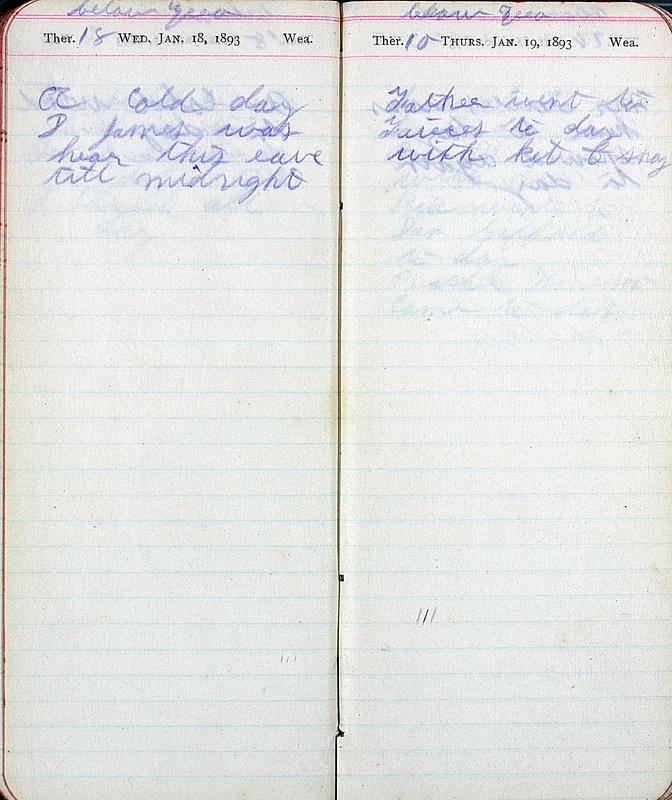 below Zero
Ther. 18 WED. JAN. 18, 1893 Wea.
A Cold day
I James was
hear this eave
till midnight
below Zero
Ther. 10 THURS. JAN. 19, 1893 Wea.
Father went to
to day
with kit &